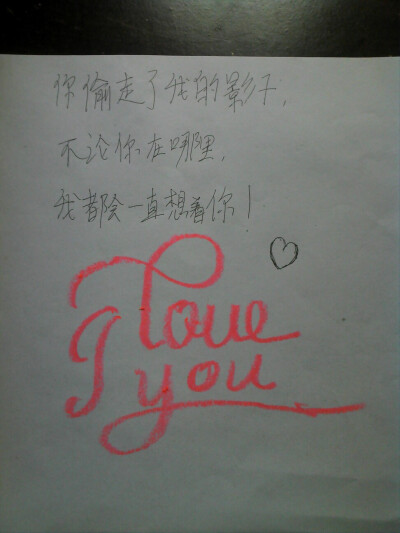 你偷走了我的影子,
不论你在哪里,
我都会一直想着你!
I love
you